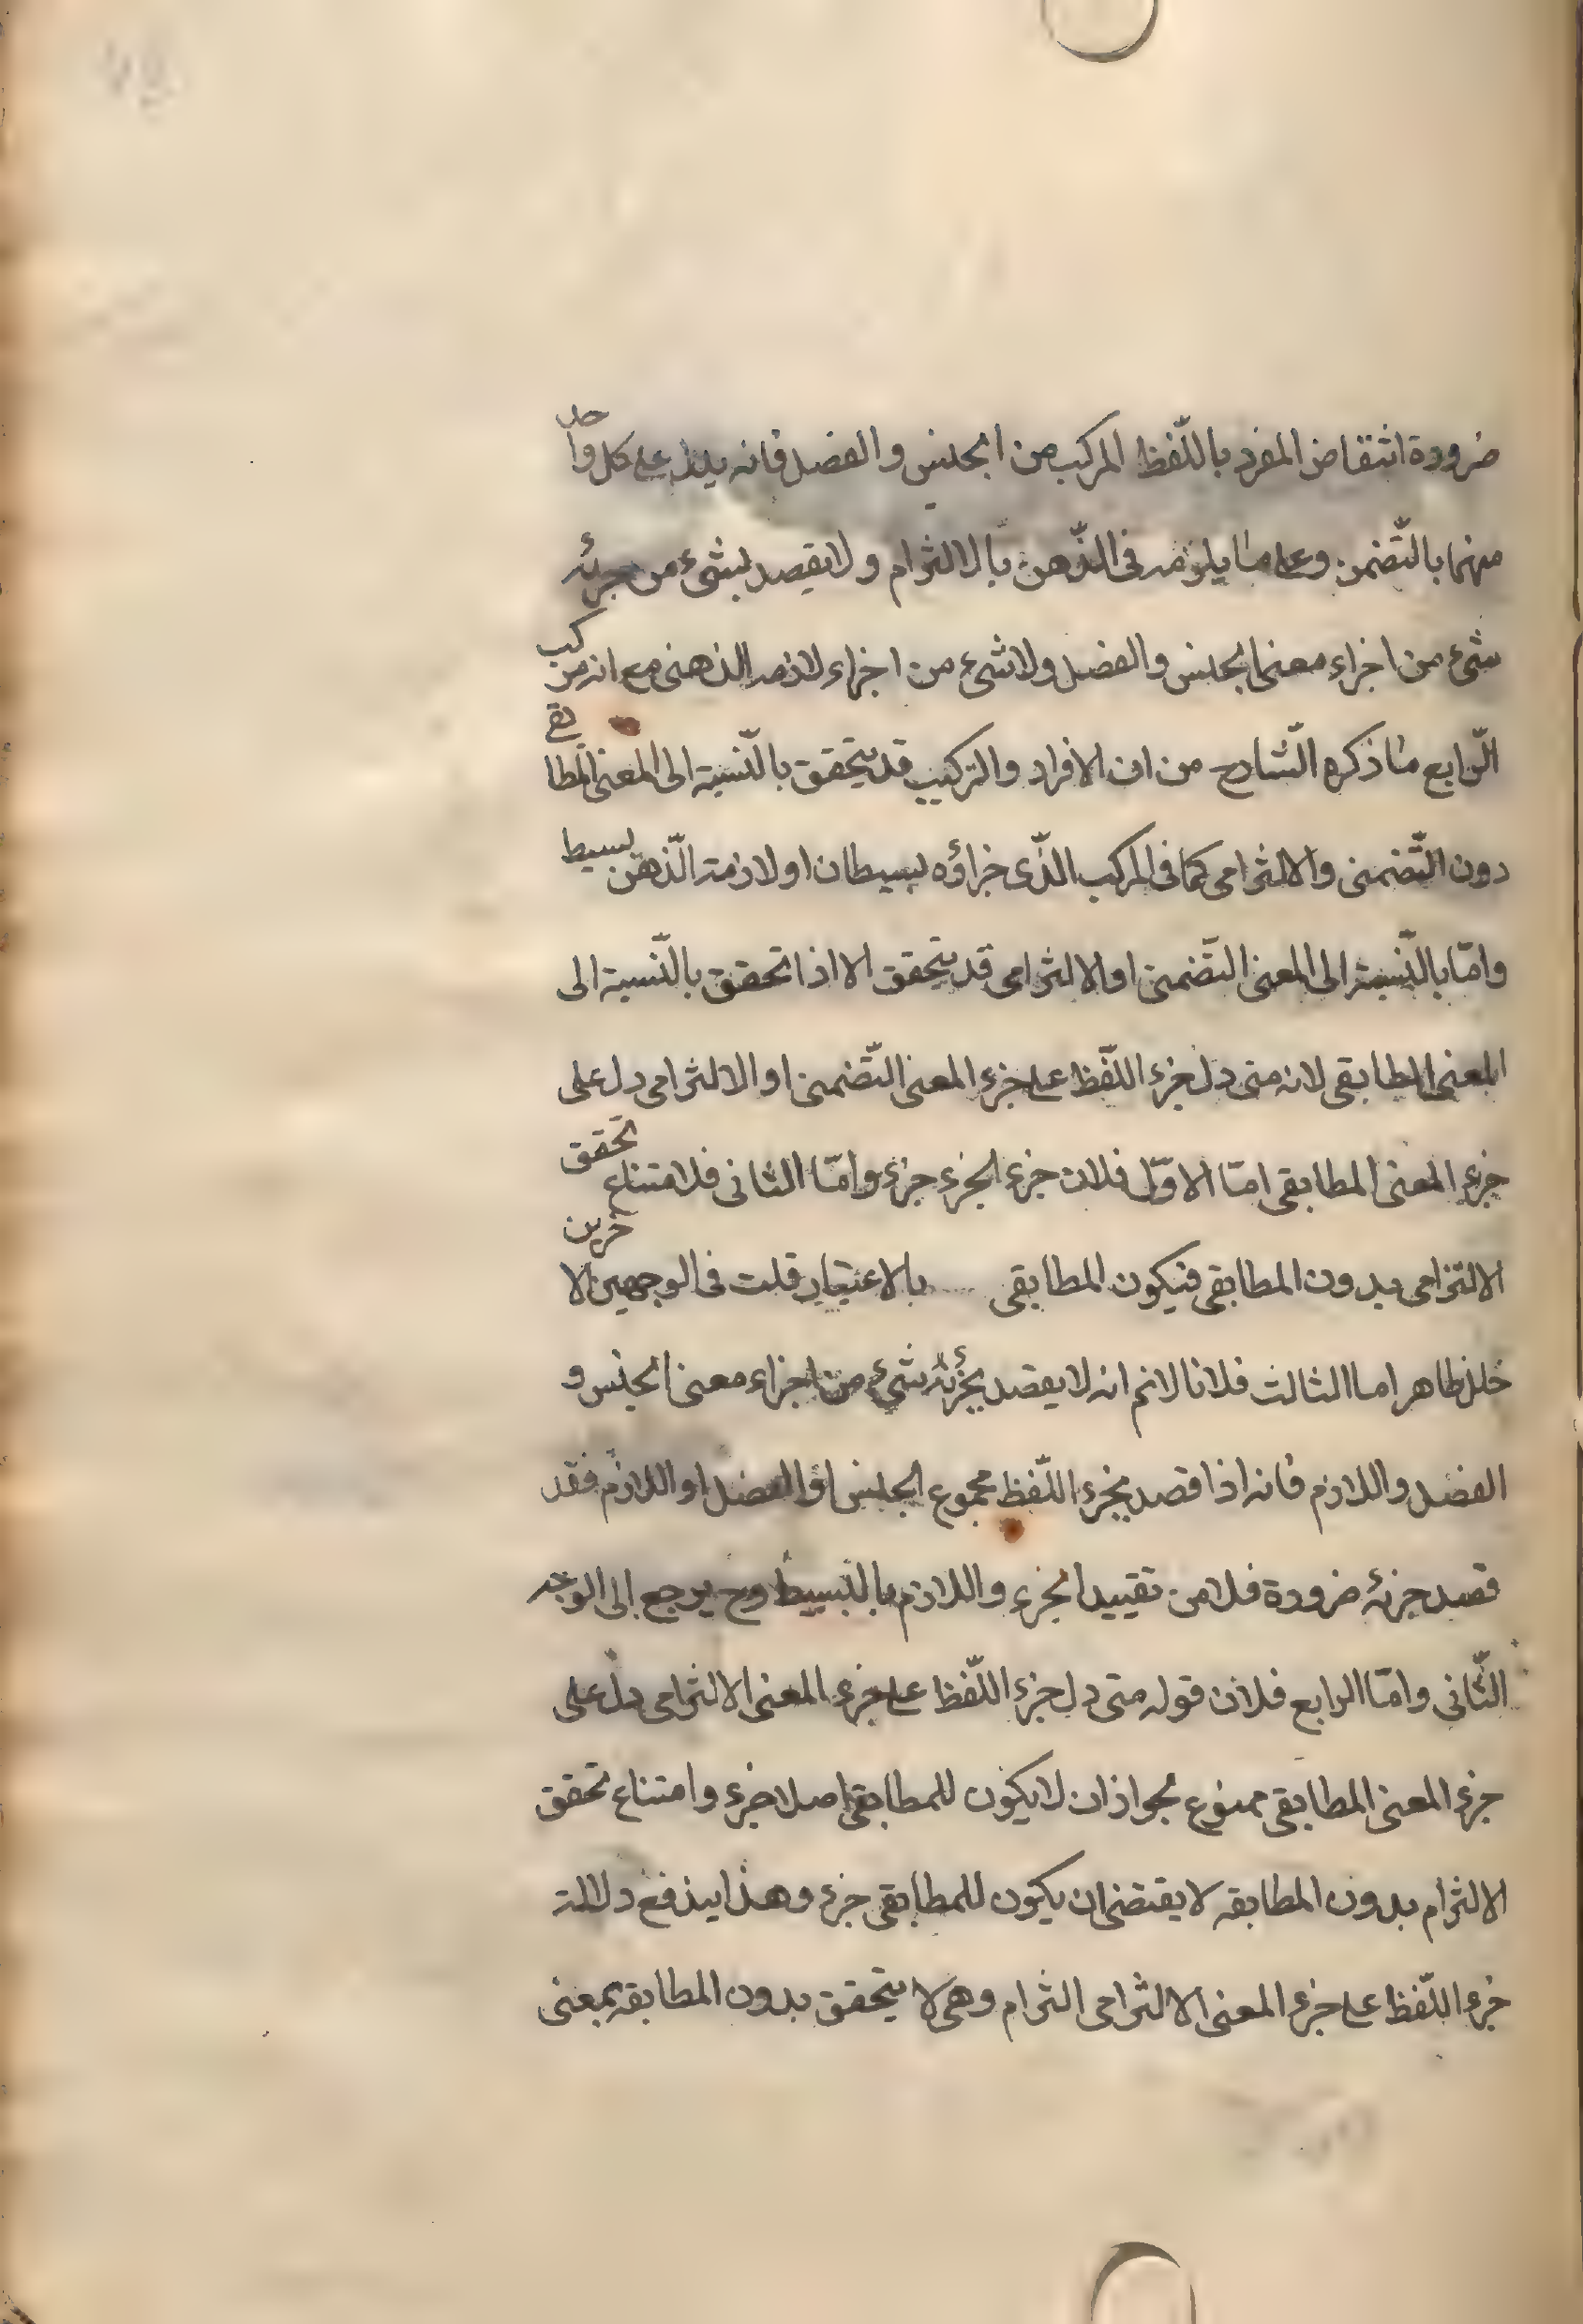 ضرورة انتقاض المفرد باللّفظ المركب من الجنس و الفصل فانه يدل على كل واحد
منهما بالتّضمن وعلى ما يلزمه فى الذّهن بالالتزام و لا يقصد بشئ من جزئه
شئ من اجزاء معنى الجنس والفصل ولا شئ من اجزاء لازمه الذهنى مع انه مركب
الرّابع ما ذكره الشّارح من ان الافراد والتركيب قد يتحقق بالنّسبة الى المعنى المطابقى
دون التّضمنى والالتزامى كما فى المركب الذّى جزاؤه بسيطان او لازمه الذّهنى بسيط
وامّا بالنّسبة الى المعنى التّضمنى او الالتزامى قد يتحقق الا اذا تحقق بالنّسبة الى
المعنى المطابقى لانه متى دل جزء اللّفظ على جزء المعنى التّضمنى او الالتزامى دل على
جزء المعنى المطابقى امّا الاوّل فلان جزء الجزء جزء وامّا الثانى فلامتناع تحقق
الالتزامى بدون المطابقى فيكون المطابقى بالاعتبار قلت فى الوجهين الاخرين
خلل ظاهر اما الثالث فلانا لانم انه لا يقصد بجزئه شئ من اجزاء معنى الجنس و
الفصل و اللازم فانه اذا قصد بجزء اللّفظ مجموع الجنس او الفصل او اللازم فقد
قصد جزئه ضرورة فلا من تقييد الجزء و اللازم بالبسيط وح يرجع الى الوجه
الثّانى وامّا الرابع فلان قوله متى دل جزء اللّفظ على جزء المعنى الالتزامى دل على
جزء المعنى المطابقى ممنوع لجواز ان لا يكون للمطابقى اصلا جزء و امتناع تحقق
الالتزام بدون المطابقه لا يقتضى ان يكون للمطابقى جزء و هذا يندفع دلالة
جزء اللّفظ على جزء المعنى الالتزامى التزام وهى لا يتحقق بدون المطابقه بمعنى